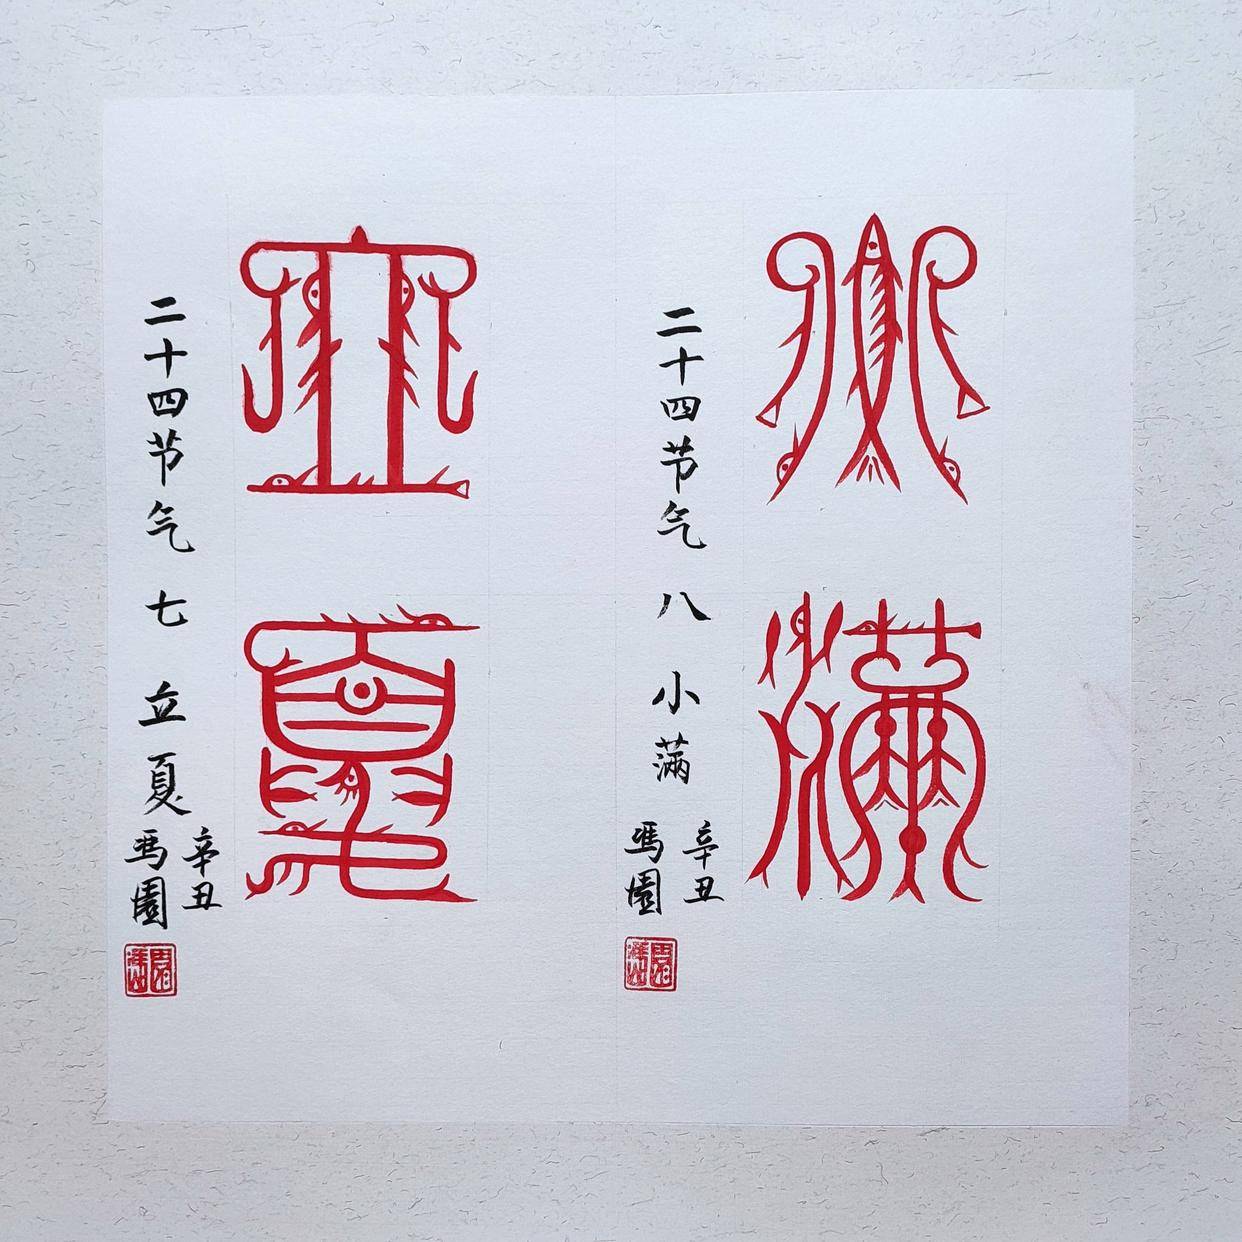 小满
二十四节气 八 小满
辛丑
馮園
立夏
二十四节气 七 立夏
辛丑
馮園